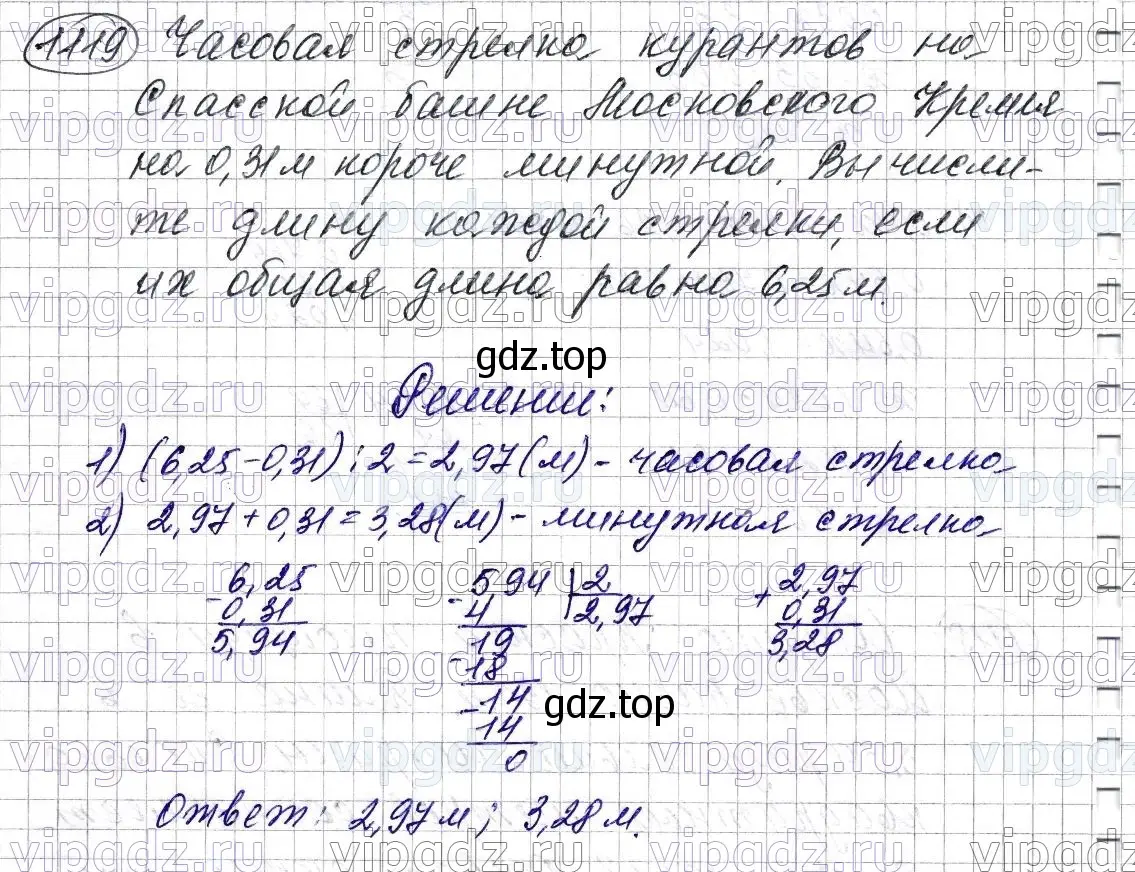 1119 Часовая стрелка курантов на
Спасской башне Московского Кремля
на 0,31 м короче минутной. Вычисли-
те длину каждой стрелки, если
их общая длина равна 6,25 м.
gdz.top
Решение:
1) (6,25-0,31):2=2,97(м)- часовая стрелка
2) 2,97+0,31=3,28(м)- минутная стрелка
- 6,25
0,31
5,94
- 5,94 | 2
4 | 2,97
19
- 18
- 14
14
0
+ 2,97
0,31
3,28
gdz.top
Ответ: 2,97м; 3,28м.
vipgdz.ru